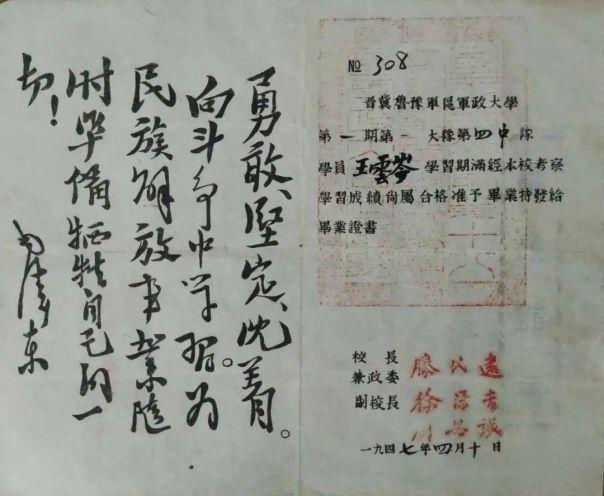 勇敢、堅定、沈着。
向斗争中学習。为
民族解放事業随
时準備牺牲自己的一
切！
毛泽东
№ 308
晋冀魯豫軍區軍政大學
第一期第一大隊第四中隊
學員王雲岑學習期滿經本校考察
學習成績尚屬合格准予畢業特發給
畢業證書
校長
兼政委 滕代遠
副校長 徐深吉
一九四七年四月十日